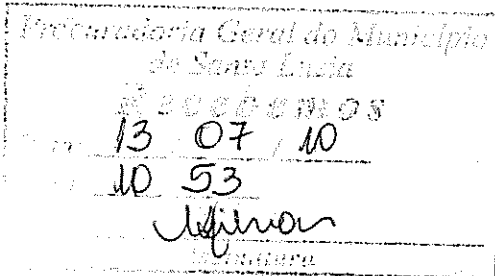 Procuradoria Geral do Município
de Santa Luzia
Recebemos
13 07 / 10
10 53
Assinatura